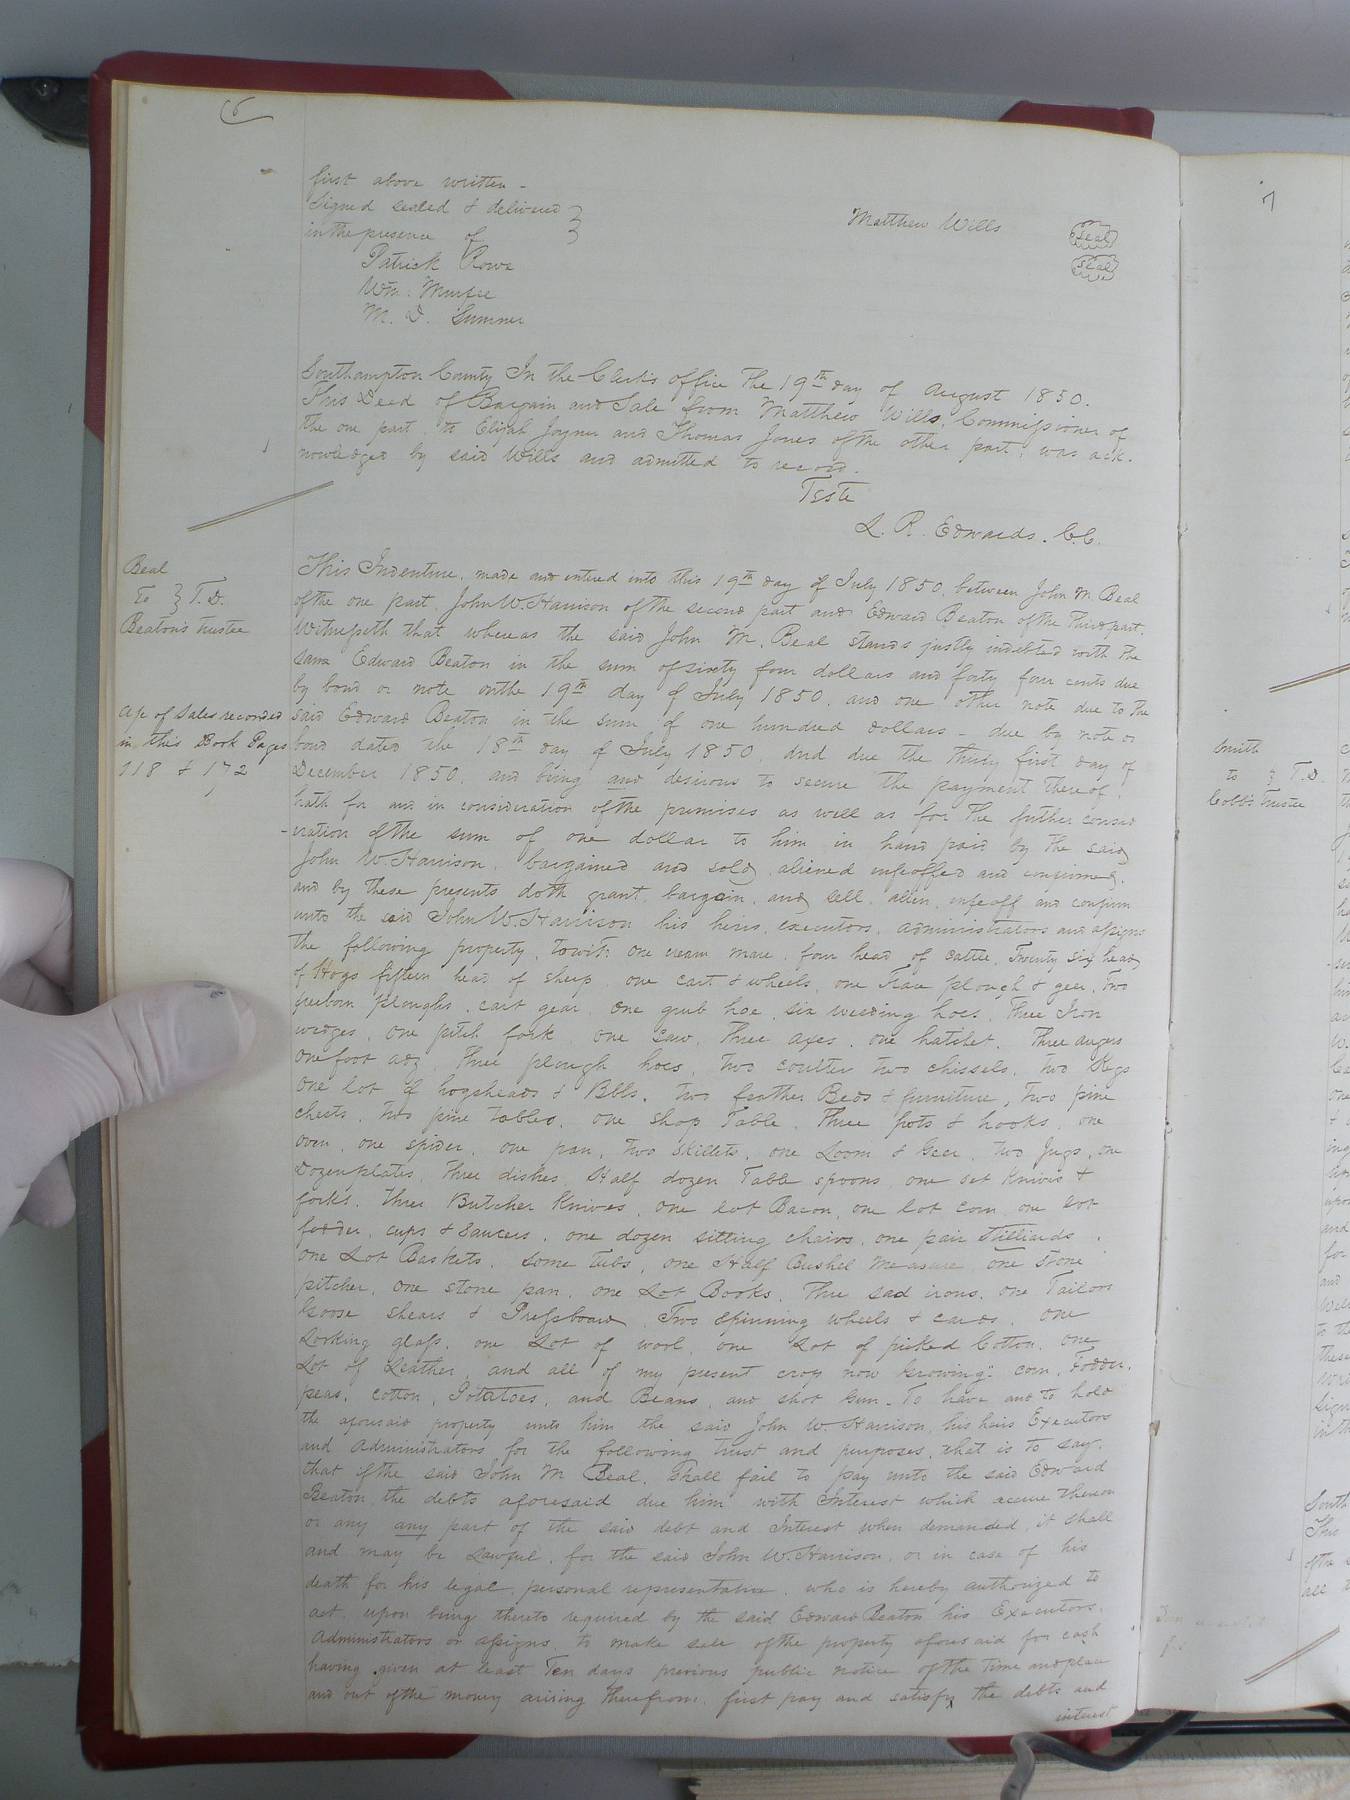 6
first above written -
Signed sealed & delivered }
in the presence of
Matthew Wills
seal
seal
Patrick Rowe
Wm. Murfee
M. D. Sumner
Southampton County In the Clerk's office the 19th day of August 1850.
This Deed of Bargain and Sale from Matthew Wills, Commissioner of
the one part, to Elijah Joyner and Thomas Jones of the other part, was ack-
nowledged by said Wills and admitted to record.
Teste
L. R. Edwards. C.C.
Beal
to } T.D.
Beaton's trustee
a/c of Sales recorded
in this Book Pages
118 & 172
This Indenture, made and entered into this 19th day of July 1850, between John M. Beal
of the one part, John W. Harrison of the second part and Edward Beaton of the Third part.
Witnesseth that whereas the said John M. Beal stands justly indebted with the
same Edward Beaton in the sum of sixty four dollars and forty four cents due
by bond or note on the 19th day of July 1850, and one other note due to the
said Edward Beaton in the sum of one hundred dollars - due by note or
bond dated the 18th day of July 1850, and due the thirty first day of
December 1850, and being and desirous to secure the payment thereof
hath for and in consideration of the premises as well as for the further consid
-eration of the sum of one dollar to him in hand paid by the said
John W Harrison, bargained and sold, aliened enfeoffed and confirmed,
and by these presents doth grant, bargain, and sell, alien, enfeoff and confirm
unto the said John W. Harrison his heirs, executors, administrators and assigns
the following property, towit: One cream mare, four head of cattle, Twenty six head
of Hogs fifteen head of sheep, one cart & wheels, one plough & geer, Two
ploughs, cart gear, One grub hoe, six weeding hoes, Three Iron
wedges, one pitch fork, one saw, Three axes, one hatchet, Three augers
one foot adz, Three plough hoes, two coulter two chissels, two Kegs
One lot of hogsheads & Bbls, two feather Beds & furniture, two pine
chests, two pine tables, one shop Table, Three pots & hooks, one
oven, one spider, one pan, two Skillets, one Loom & Geer, two Jugs, one
Dozen plates, three dishes, Half dozen Table spoons, one set Knives &
forks, three Butcher Knives, one lot Bacon, one lot corn, one lot
fodder, cups & Saucers, one dozen sitting chairs, one pair Stilliards,
one Lot Baskets, some tubs, one Half Bushel Measure, one stone
pitcher, one stone pan, one Lot Books, Three sad irons, one Tailors
Goose shears & Pressboard, Two spinning wheels & cards, one
Looking glass, one Lot of wool, one Lot of picked Cotton, one
Lot of Leather, and all of my present crop now growing: corn, Fodder,
peas, cotton, Potatoes, and Beans, and shot Gun. To have and to hold
the aforesaid property unto him the said John W. Harrison, his heirs Executors
and Administrators for the following trust and purposes, that is to say,
that if the said John M Beal, shall fail to pay unto the said Edward
Beaton the debts aforesaid due him with Interest which accrue thereon
or any any part of the said debt and Interest when demanded, it shall
and may be Lawful, for the said John W. Harrison, or in case of his
death for his legal personal representative, who is hereby authorized to
act, upon being thereto required by the said Edward Beaton his Executors,
Administrators or assigns, to make sale of the property aforesaid for cash
having given at least Ten days previous public notice of the time and place
and out of the money arising therefrom, first pay and satisfy the debts and
interest
7
Smith
to } T.D.
Cobb's trustee